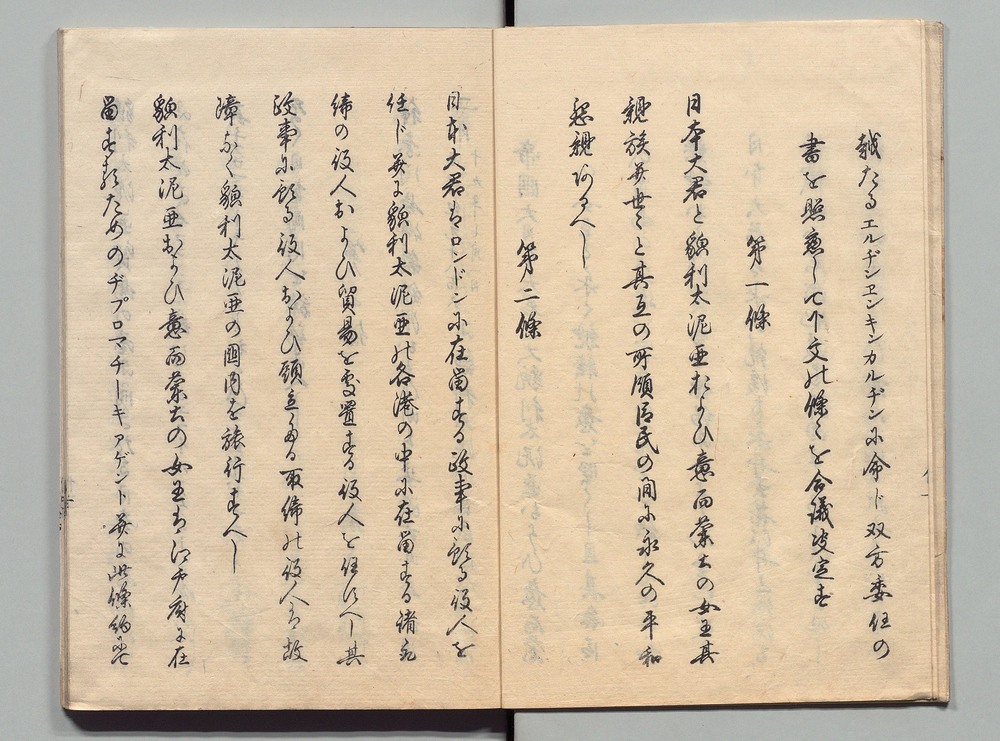 越たるエルヂンエンキンカルヂンに命ド双方委任の
書を照應して下文の條々を合議決定す
第一條
日本大君と貌利太泥亜および意而蘭士の女王其
親族并世々と其互の所領臣民の間に永久の平和
懇親あるへし
第二條
日本大君はロンドンに在留する政事に預る役人を
任ド并に貌利太泥亜の各港の中に在留する諸取
締の役人および貿易を処置する役人を任ずへし其
政事に預る役人および頭立たる取締の役人は故
障なく貌利太泥亜の國内を旅行すへし
貌利太泥亜および意而蘭士の女王は江戸府に在
留するためのヂプロマチーキアゲント并に此條約に